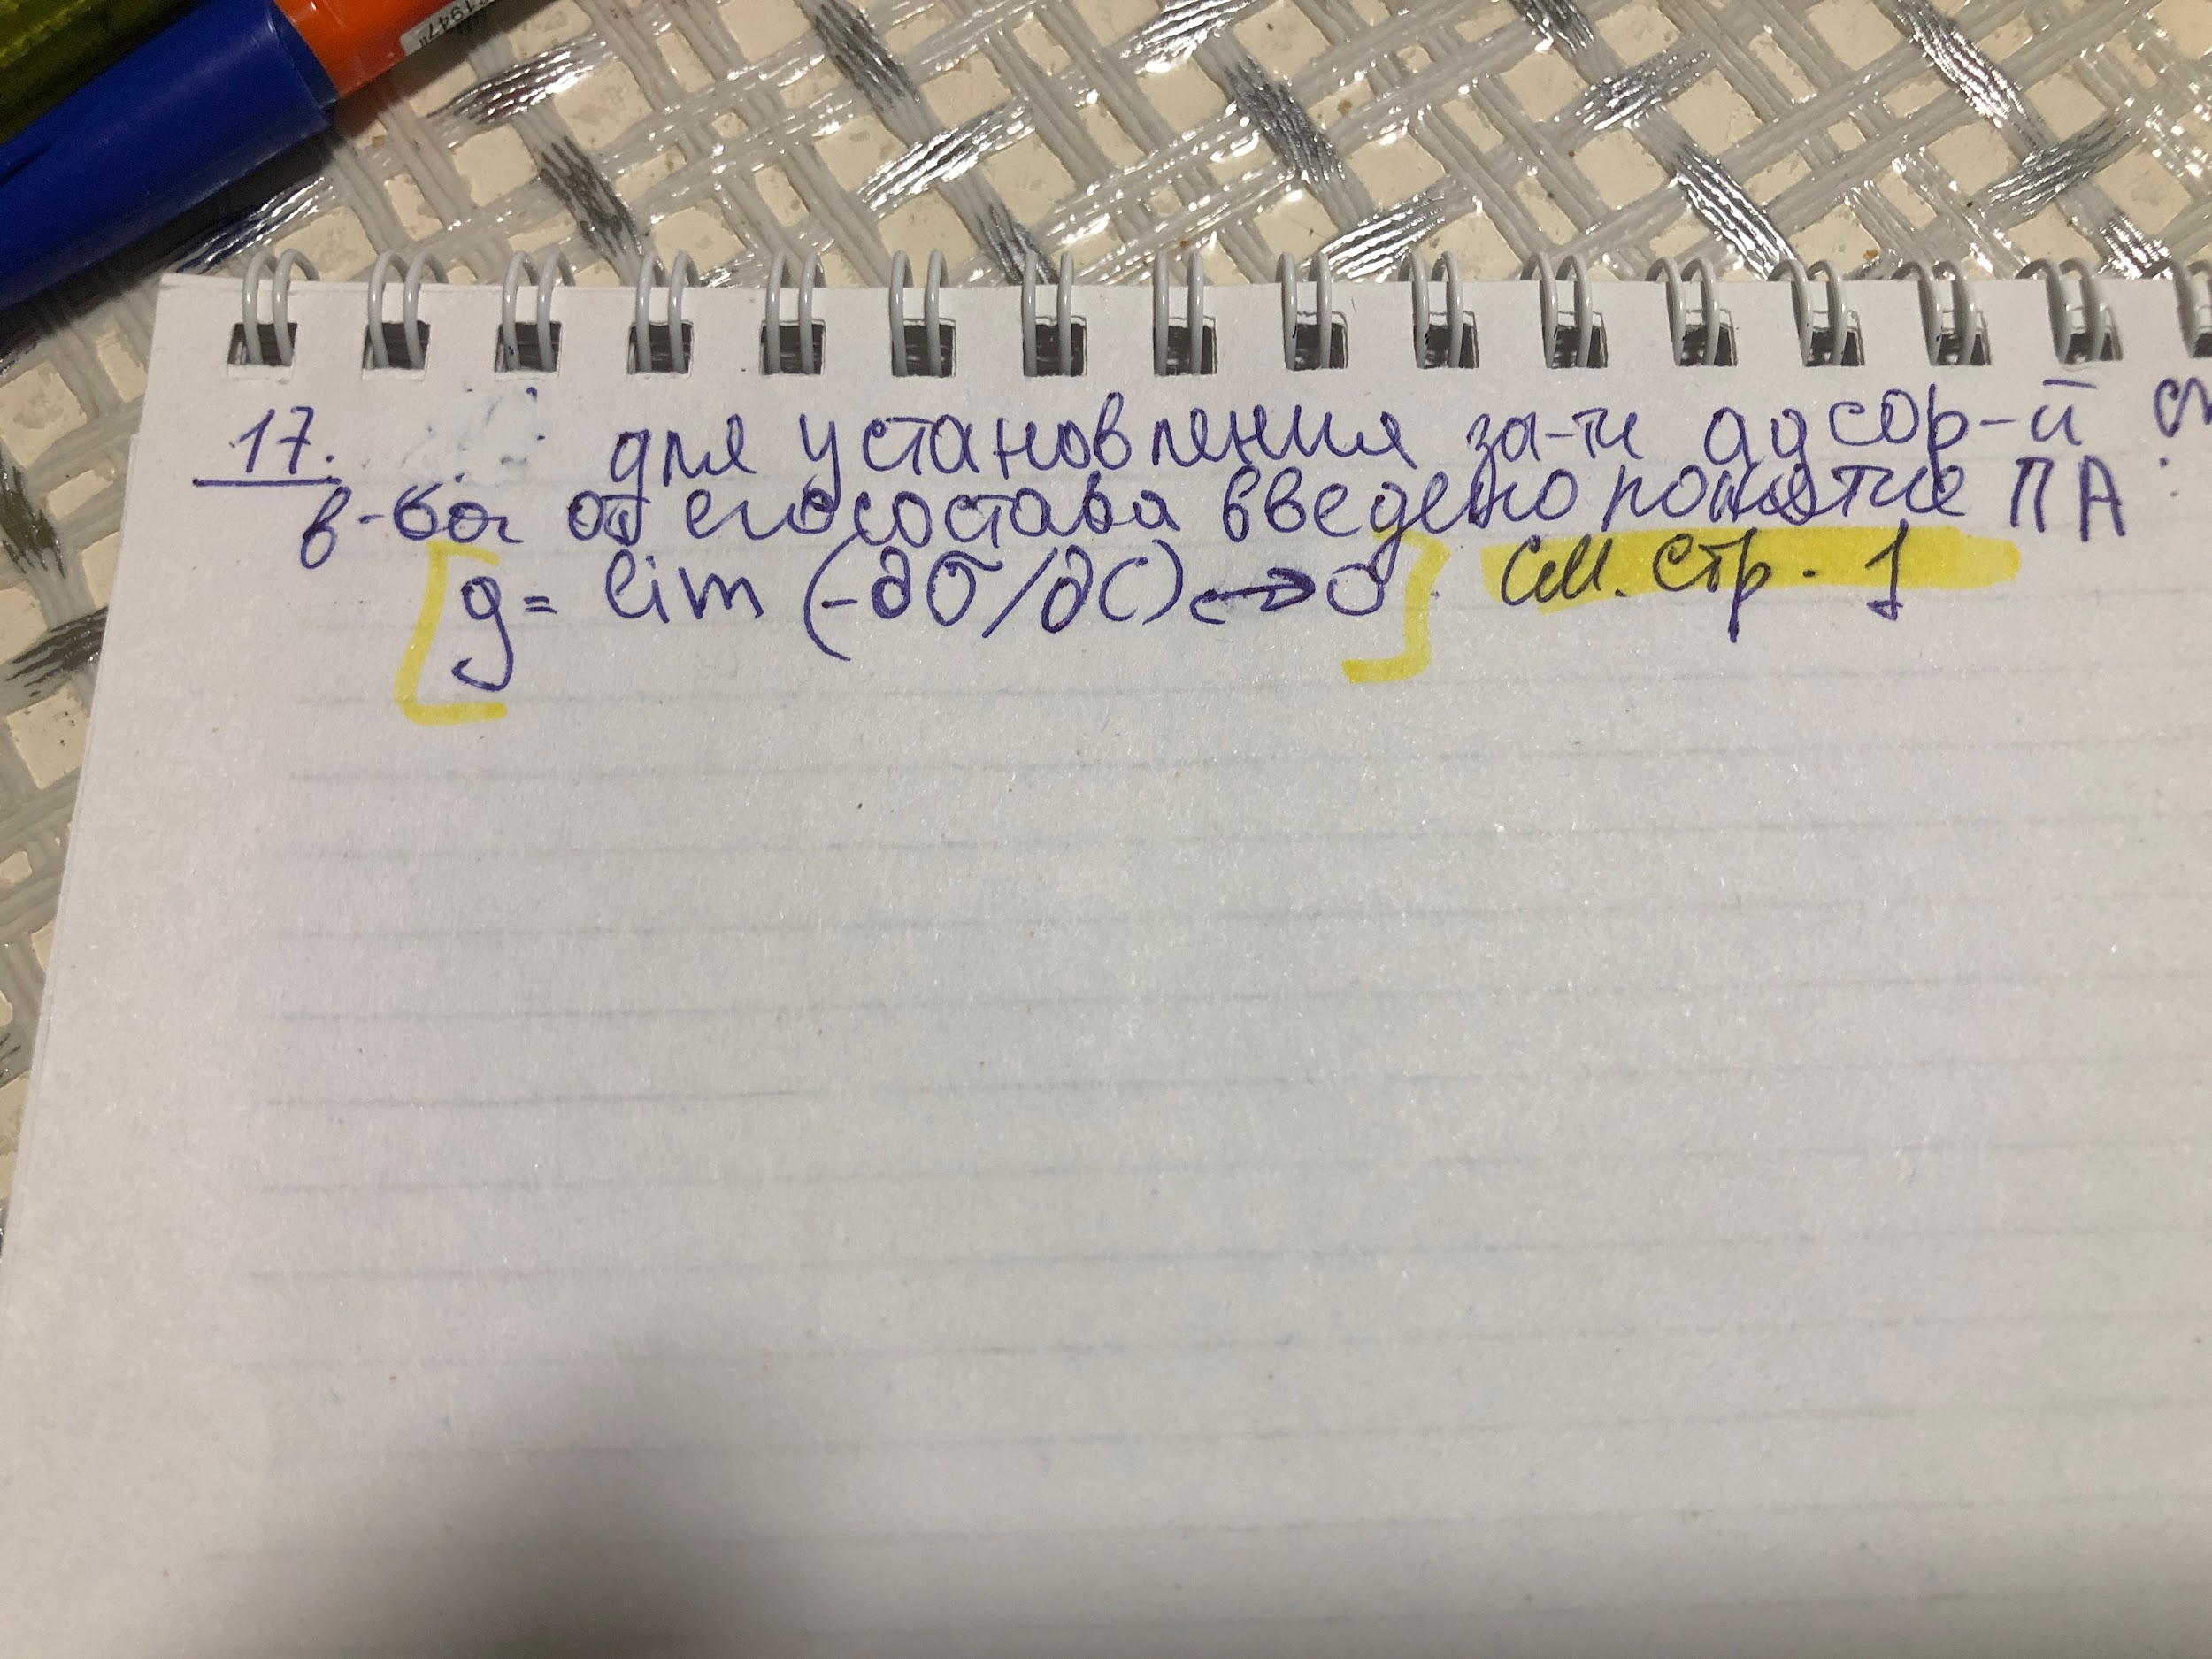 1947"
17. для установления за-ти адсор-й
в-ва от его состава введено понятие ПА:
g = lim (-∂σ/∂C)c→0. См. стр. 1